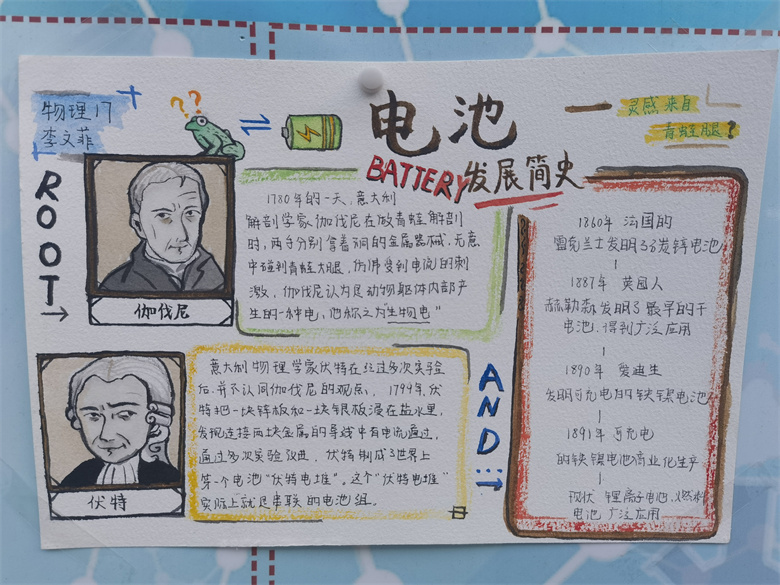 物理17
李文菲
??
电池
BATTERY发展简史
灵感来自
青蛙腿?
ROOT→
伽伐尼
1780年的一天,意大利
解剖学家伽伐尼在做青蛙解剖
时,两手分别拿着不同的金属器械,无意
中碰到青蛙大腿,仿佛受到电流的刺
激,伽伐尼认为是动物躯体内部产
生的一种电,他称之为"生物电"
伏特
意大利物理学家伏特在经过多次实验
后,并不认同伽伐尼的观点,1799年,伏
特把一块锌板和一块银板浸在盐水里,
发现连接两块金属的导线中有电流通过,
通过多次实验改进,伏特制成了世界上
第一个电池"伏特电堆"。这个"伏特电堆"
实际上就是串联的电池组。
AND...→
1860年 法国的
雷克兰士发明了碳锌电池
1887年 英国人
赫勒森发明了最早的干
电池,得到广泛应用
1890年 爱迪生
发明可充电的铁镍电池
1891年 可充电
的铁镍电池商业化生产
现状 锂离子电池,燃料
电池广泛应用